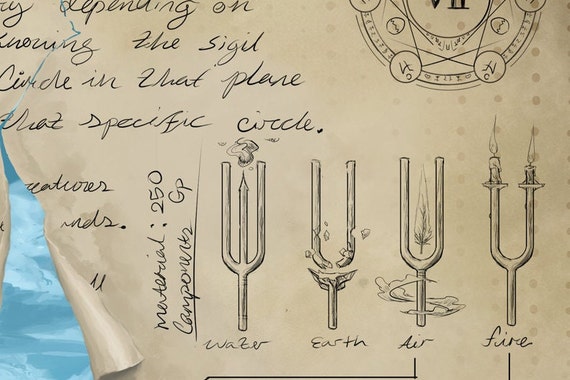 depending on
knowing the sigil
Circle in that plane
that specific circle.
VII
material: 250
Gp
Components
Water
Earth
Air
fire